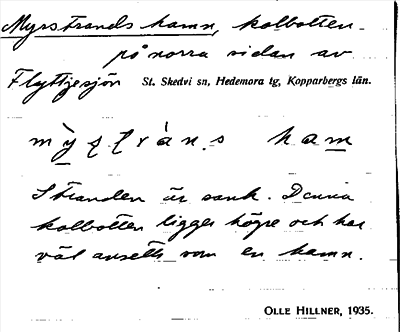 Myrstrands hamn, kolbotten
på norra sidan av
Flyttjesjön St. Skedvi sn, Hedemora tg, Kopparbergs län.
ham
Stranden är sank. Denna
kolbotten ligger högre och har
väl ansetts som en hamn.
OLLE HILLNER, 1935.